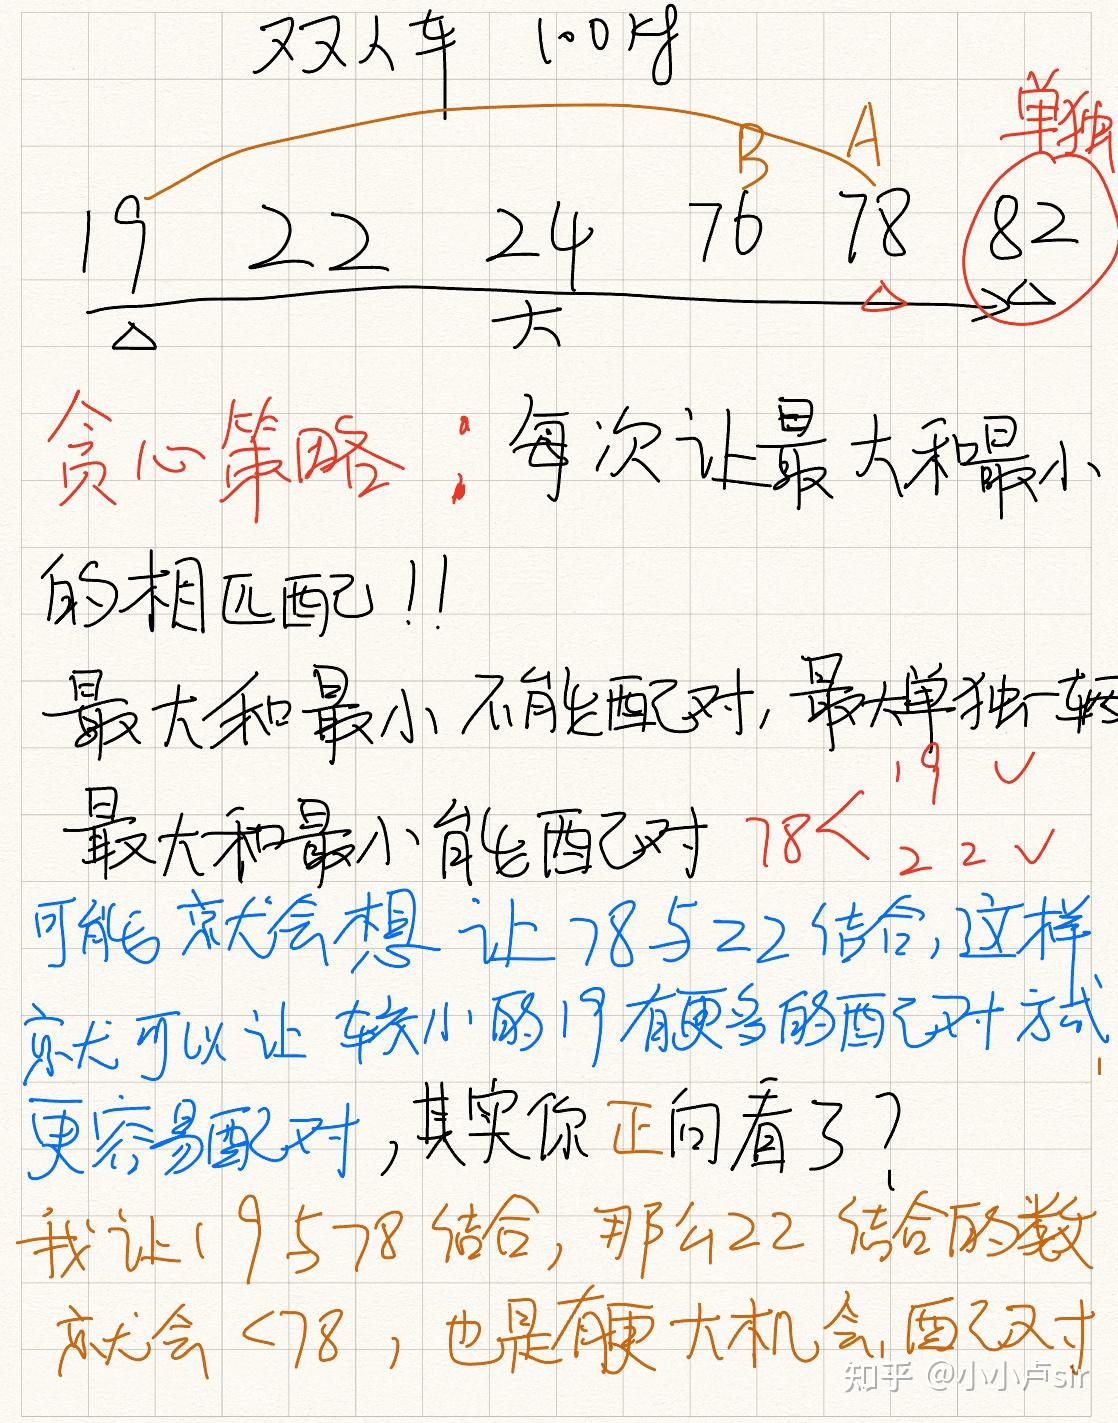 双双人车 100kg
单独
B A
19 22 24 76 78 82
大
贪心策略：每次让最大和最小
的相匹配!!
最大和最小不能配对,最大单独一辆
最大和最小能配对 78< 19 ✓
22 ✓
可能就会想 让78与22结合,这样
就可以让 较小的19有更多的配对方式
更容易配对,其实你正向看了?
我让19与78结合,那么22结合的数
就会<78,也是有更大机会配对
知乎 @小小卢sir